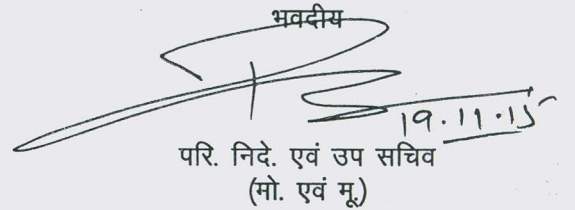 भवदीय
19.11.15
परि. निदे. एवं उप सचिव
(मो. एवं मू.)